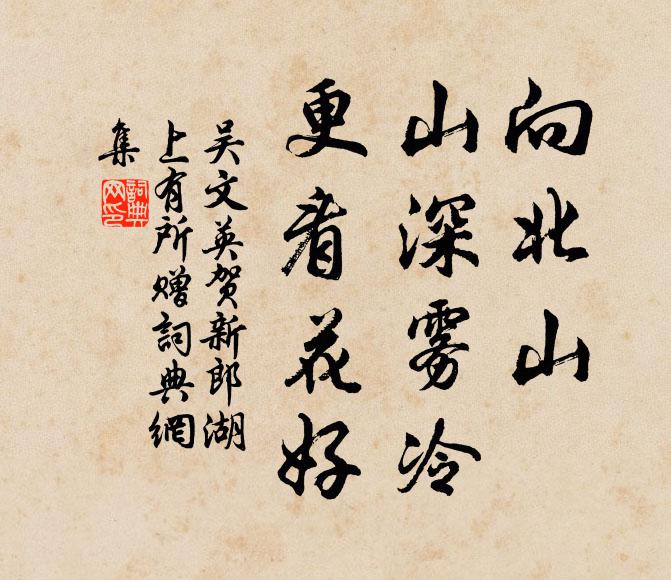 向北山
山深雾冷
更看花好
吴文英贺新郎湖
上有所赠詞典網
集
詞典
网印